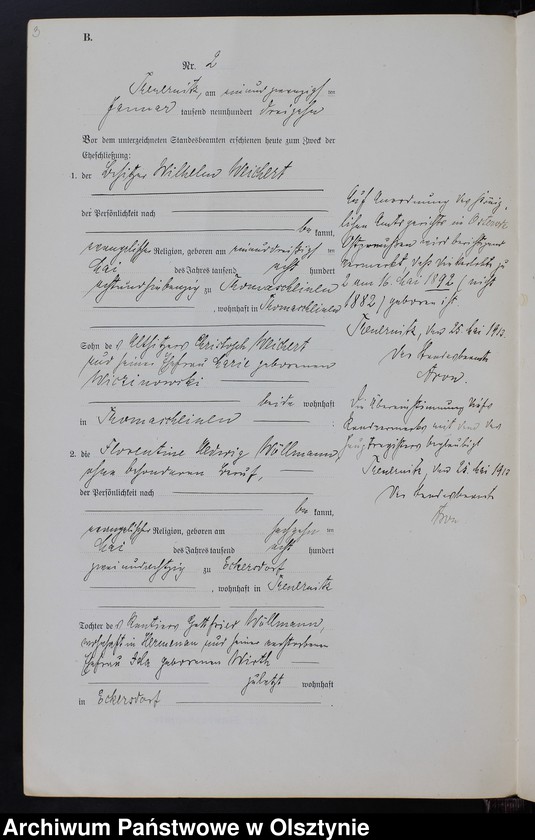 3
B.
Nr. 2
am einundzwanzigsten
Januar tausend neunhundert dreizehn
Vor dem unterzeichneten Standesbeamten erschienen heute zum Zweck der
Eheschließung:
1. der Besitzer Wilhelm Weichert
der Persönlichkeit nach
be kannt,
evangelischer Religion, geboren am einunddreißigsten
Mai des Jahres tausend acht hundert
achtundsiebenzig zu Thomascheinen
, wohnhaft in Thomascheinen
Sohn des Altsitzers Christoph Weichert
und seiner Ehefrau Marie geborenen
Wiczinowski
beide wohnhaft
in Thomascheinen
2. die Florentine Hedwig Wöllmann,
ohne besonderen Beruf,
der Persönlichkeit nach
be kannt,
evangelischer Religion, geboren am sechzehnten
Mai des Jahres tausend acht hundert
zweiundachtzig zu Eckersdorf
, wohnhaft in
Tochter des Rentiers Gottfried Wöllmann,
wohnhaft in Hermenau und seiner verstorbenen
Ehefrau Ida geborenen Wirth
zuletzt wohnhaft
in Eckersdorf
Auf Anordnung des König-
lichen Amtsgerichts in Osterode
Ostpreußen wird berichtigend
vermerkt, daß die Verlobte zu
2 am 16. Mai 1892 (nicht
1882) geboren ist.
den 25 Mai 1913.
Der Standesbeamte
Die Übereinstimmung dieses
Randvermerks mit dem des
Hauptregisters beglaubigt
den 25 Mai 1913
Der Standesbeamte
Archiwum Państwowe w Olsztynie